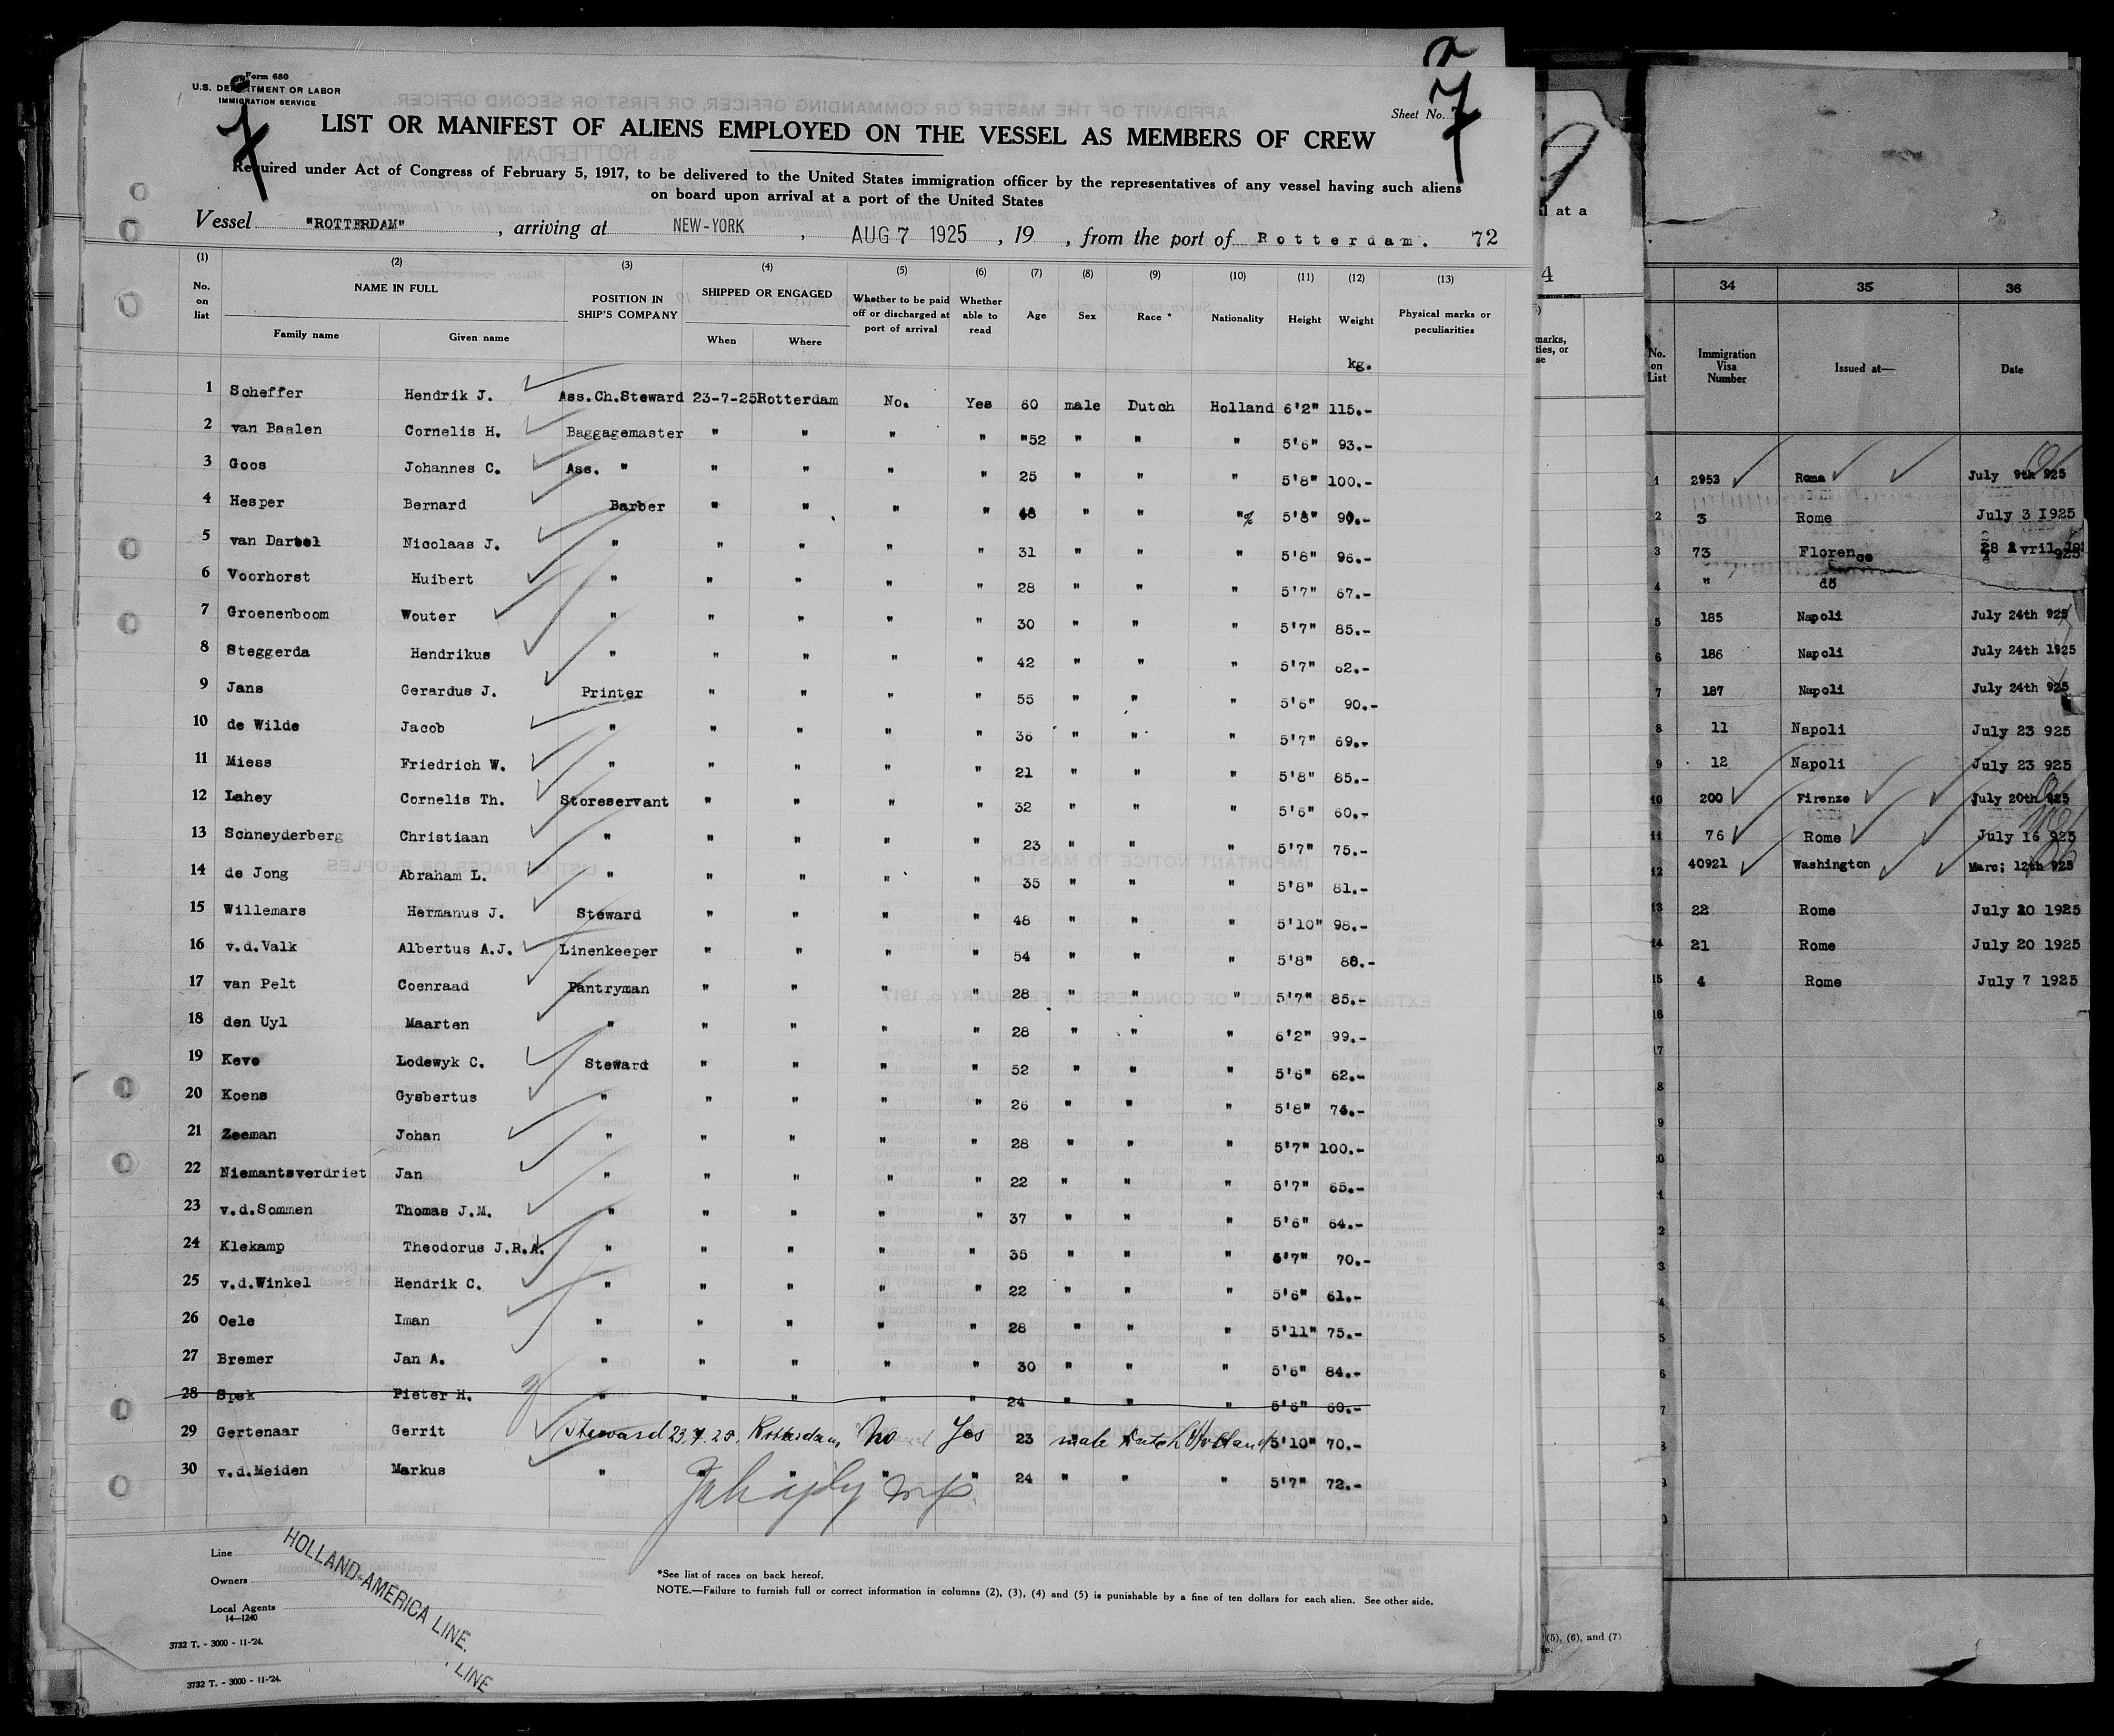 Form 680
U.S. DEPARTMENT OR LABOR
IMMIGRATION SERVICE
7
7
Sheet No.
LIST OR MANIFEST OF ALIENS EMPLOYED ON THE VESSEL AS MEMBERS OF CREW
Required under Act of Congress of February 5, 1917, to be delivered to the United States immigration officer by the representatives of any vessel having such aliens
on board upon arrival at a port of the United States
Vessel "ROTTERDAM", arriving at NEW-YORK, AUG 7 1925, 19 , from the port of Rotterdam. 72
(1) (2) (3) (4) (5) (6) (7) (8) (9) (10) (11) (12) (13)
No. on list NAME IN FULL Family name Given name POSITION IN SHIP'S COMPANY SHIPPED OR ENGAGED When Where Whether to be paid off or discharged at port of arrival Whether able to read Age Sex Race * Nationality Height Weight Physical marks or peculiarities
kg.
1 Scheffer Hendrik J. Ass.Ch.Steward 23-7-25 Rotterdam No. Yes 60 male Dutch Holland 6'2" 115.-
2 van Baalen Cornelis H. Baggagemaster " " " " "52 " " " 5'6" 93.-
3 Goos Johannes C. Ass. " " " " " 25 " " " 5'8" 100.-
4 Hesper Bernard Barber " " " " 48 " " " 5'8" 90.-
5 van Dartel Nicolaas J. " " " " " 31 " " " 5'8" 96.-
6 Voorhorst Huibert " " " " " 28 " " " 5'7" 67.-
7 Groenenboom Wouter " " " " " 30 " " " 5'7" 85.-
8 Steggerda Hendrikus " " " " " 42 " " " 5'7" 62.-
9 Jans Gerardus J. Printer " " " " 55 " " " 5'6" 90.-
10 de Wilde Jacob " " " " " 36 " " " 5'7" 69.-
11 Miess Friedrich W. " " " " " 21 " " " 5'8" 85.-
12 Lahey Cornelis Th. Storeservant " " " " 32 " " " 5'6" 60.-
13 Schneyderberg Christiaan " " " " " 23 " " " 5'7" 75.-
14 de Jong Abraham L. " " " " " 35 " " " 5'8" 81.-
15 Willemars Hermanus J. Steward " " " " 48 " " " 5'10" 98.-
16 v.d.Valk Albertus A.J. Linenkeeper " " " " 54 " " " 5'8" 88.-
17 van Pelt Coenraad Pantryman " " " " 28 " " " 5'7" 85.-
18 den Uyl Maarten " " " " " 28 " " " 6'2" 99.-
19 Keve Lodewyk C. Steward " " " " 52 " " " 5'6" 62.-
20 Koens Gysbertus " " " " " 26 " " " 5'8" 74.-
21 Zeeman Johan " " " " " 28 " " " 5'7" 100.-
22 Niemantsverdriet Jan " " " " " 22 " " " 5'7" 65.-
23 v.d.Sommen Thomas J.M. " " " " " 37 " " " 5'6" 64.-
24 Klekamp Theodorus J.R.A. " " " " " 35 " " " 5'7" 70.-
25 v.d.Winkel Hendrik C. " " " " " 22 " " " 5'6" 61.-
26 Oele Iman " " " " " 28 " " " 5'11" 75.-
27 Bremer Jan A. " " " " " 30 " " " 5'6" 84.-
28 Spek Pieter H. " " " " " 24 " " " 5'6" 60.-
29 Gertenaar Gerrit Steward 23.7.25. Rotterdam No Yes 23 male Dutch Holland 5'10" 70.-
30 v.d.Meiden Markus " " " " " 24 " " " 5'7" 72.-
Line
Owners
Local Agents
14—1240
HOLLAND-AMERICA LINE.
LINE
*See list of races on back hereof.
NOTE.—Failure to furnish full or correct information in columns (2), (3), (4) and (5) is punishable by a fine of ten dollars for each alien. See other side.
3732 T. - 3000 - 11-'24.
3732 T. - 3000 - 11-'24.
at a
4
marks,
ties, or
se
(5), (6), and (7)
34 35 36
No. on List Immigration Visa Number Issued at— Date
1 2953 Roma July 9th 925
2 3 Rome July 3 1925
3 73 Florence 28 Avril 925
4 " do
5 185 Napoli July 24th 925
6 186 Napoli July 24th 1925
7 187 Napoli July 24th 925
8 11 Napoli July 23 925
9 12 Napoli July 23 925
10 200 Firenze July 20th 925
11 76 Rome July 16 925
12 40921 Washington Marc; 12th 925
13 22 Rome July 20 1925
14 21 Rome July 20 1925
15 4 Rome July 7 1925
16
17
8
9
0
1
2
3
4
5
6
7
8
9
0